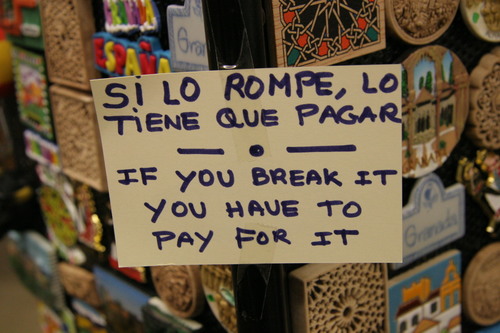 ESPAÑA
Grana
SÍ LO ROMPE, LO
TIENE QUE PAGAR
IF YOU BREAK IT
YOU HAVE TO
PAY FOR IT
Granada